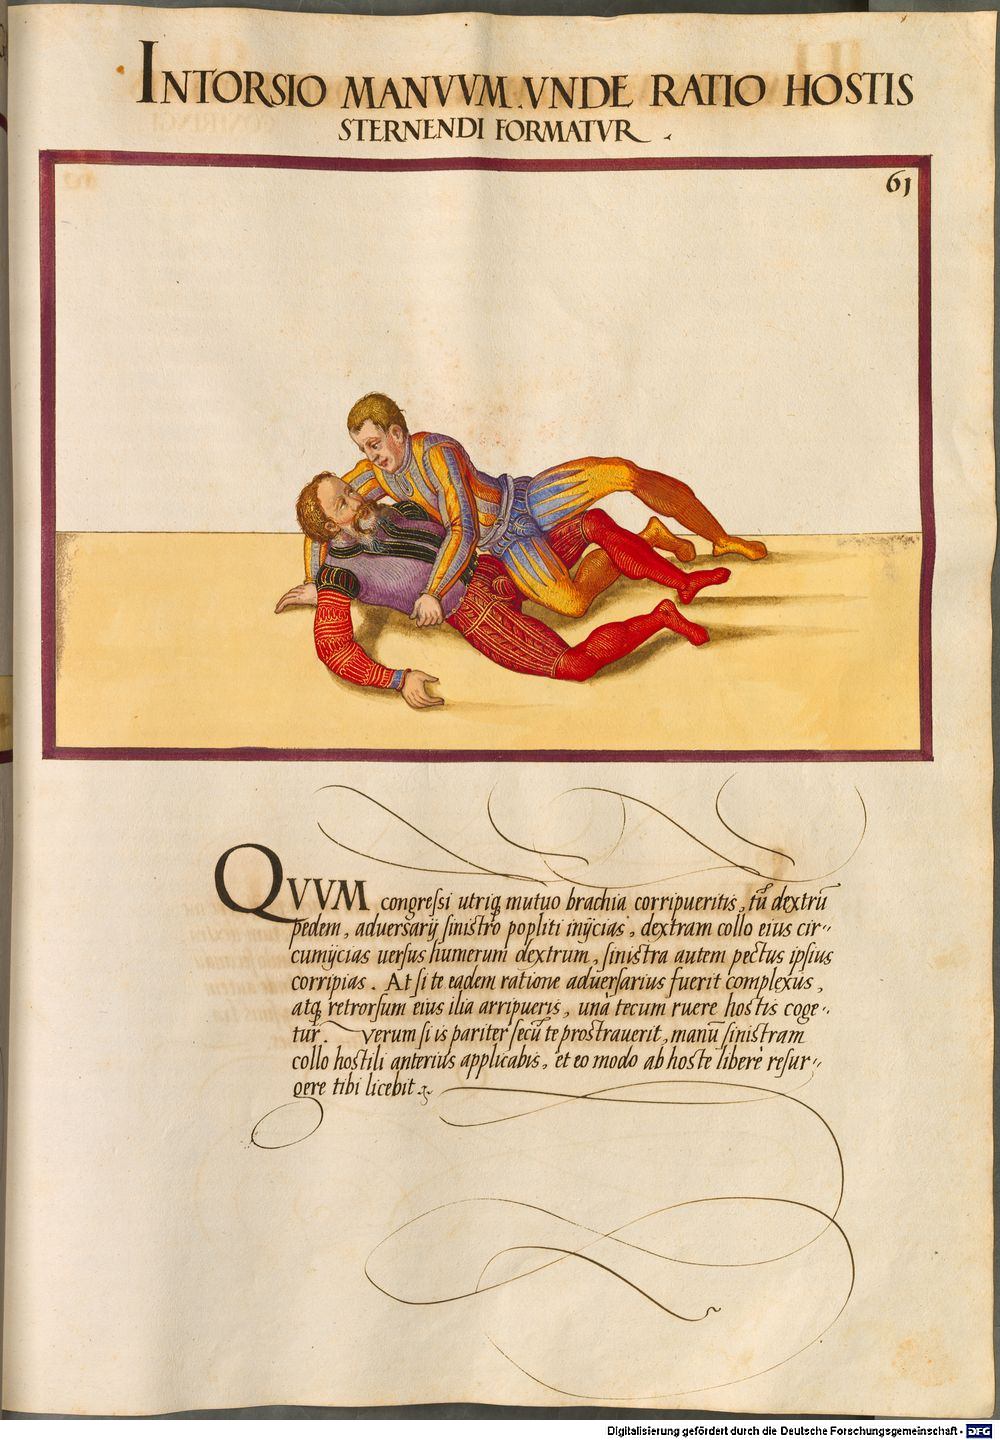 INTORSIO MANVVM.VNDE RATIO HOSTIS
STERNENDI FORMATVR.
61
QVVM congressi utriq mutuo brachia corripueritis, tũ dextrũ
pedem, adversarij sinistro popliti inijcias, dextram collo eius cir-
cumijcias versus humerum dextrum, sinistra autem pectus ipsius
corripias. At si te eadem ratione adversarius fuerit complexus,
atq retrorsum eius ilia arripueris, una tecum ruere hostis coge-
tur. verum si is pariter secũ te prostraverit, manũ sinistram
collo hostili anterius applicabis, et eo modo ab hoste liberè resur-
gere tibi licebit.
Digitalisierung gefördert durch die Deutsche Forschungsgemeinschaft - DFG